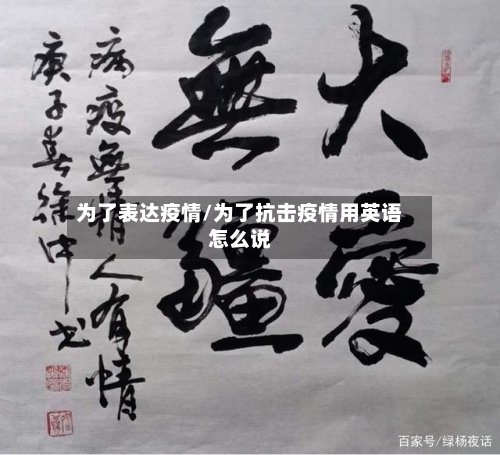 大愛
無疆
病疫無情人有情
庚子春徐中书
为了表达疫情/为了抗击疫情用英语
怎么说
百家号/绿杨夜话